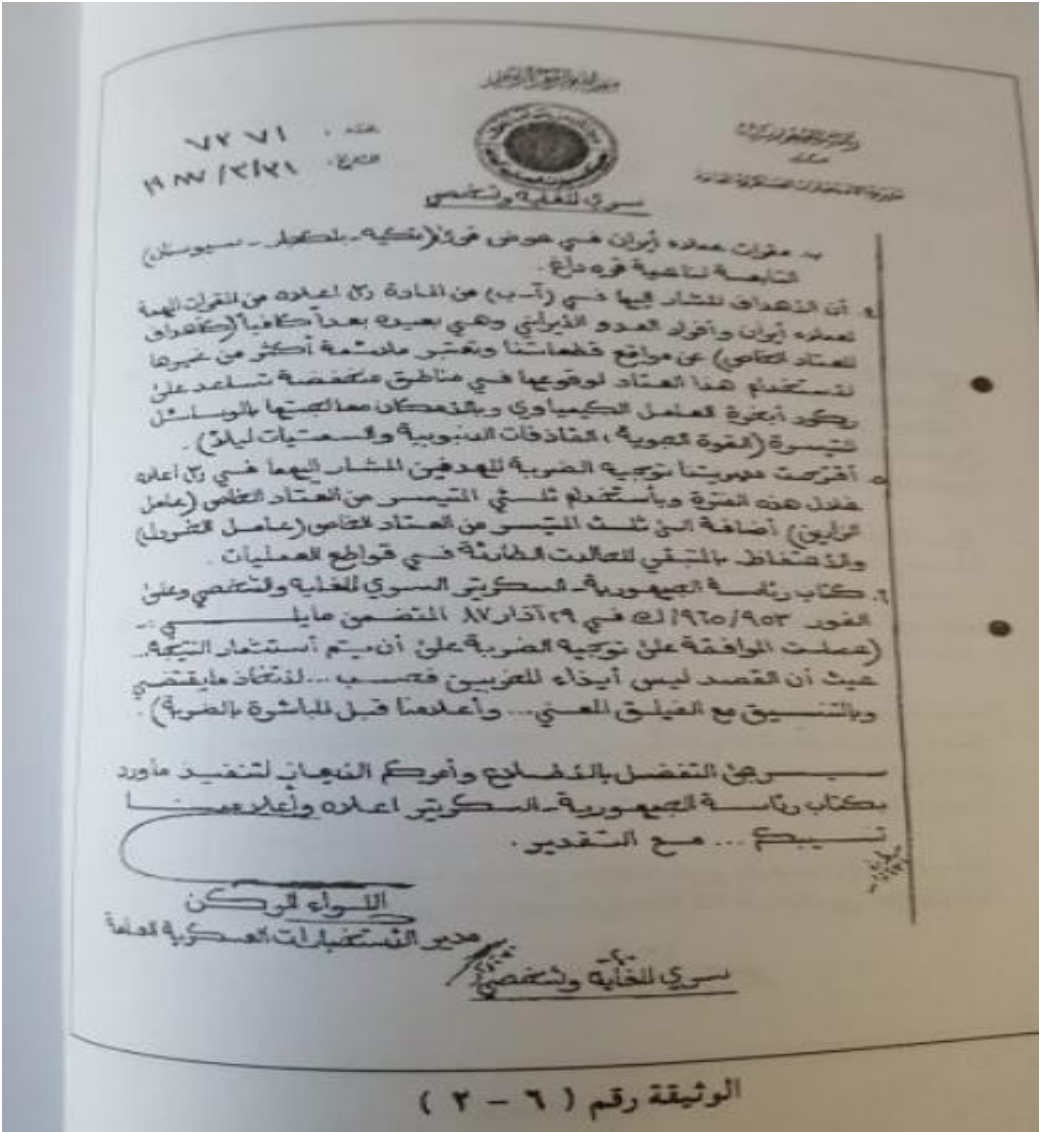 بسم الله الرحمن الرحيم
رئاسة الجمهورية
السكرتير
مديرية الاستخبارات العسكرية العامة
العدد / ٧٣٧١
التاريخ / ٣١/٣/١٩٨٧
سري للغاية وشخصي
ب. مقرات عملاء أيران في حوض (تكية - بلكجار - سيوسنان)
التابعة لناحية قره داغ .
٤. أن الأهداف المشار إليها في (آ-ب) من المادة اعلاه من المقرات المهمة
لعملاء أيران وأفراد العدو الأيراني وهي بعيدة بعداً كافياً (كأهداف
للعتاد الخاص) عن مواقع قطعاتنا وتعتبر ملائمة أكثر من غيرها
لاستخدام هذا العتاد لوقوعها في مناطق منخفضة تساعد على
ركود أبخرة العامل الكيمياوي وبالأمكان معالجتها بالوسائل
المتيسرة (القوة الجوية ، القاذفات الأنبوبية والسمتيات ليلاً) .
٥. أقترحت مديريتنا توجيه الضربة للهدفين المشار إليهما في اعلاه
خلال هذه الفترة وبأستخدام ثلثي المتيسر من العتاد الخاص (عامل
الزارين) أضافة الى ثلث المتيسر من العتاد الخاص (عامل الخردل)
والأحتفاظ بالمتبقي للحالات الطارئة في قواطع العمليات .
٦. كتاب رئاسة الجمهورية - السكرتير السري للغاية والشخصي وعلى
الفور ٩٥٣/٩٦٥/ك في ٢٩ آذار ٨٧ المتضمن مايلي :-
(حصلت الموافقة على توجيه الضربة على أن يتم أستثمار النتيجة..
حيث أن القصد ليس أيذاء المخربين فحسب ... لأتخاذ مايقتضي
وبالتنسيق مع الفيلق المعني... وأعلامنا قبل المباشرة بالضربة) .
يرجى التفضل بالأطلاع وأمركم الأيعاز لتنفيذ ماورد
بكتاب رئاسة الجمهورية - السكرتير اعلاه وأعلامنا
تنسيبكم ... مع التقدير .
اللواء الركن
مدير الأستخبارات العسكرية العامة
-٢-
سري للغاية وشخصي
الوثيقة رقم ( ٦ - ٢ )